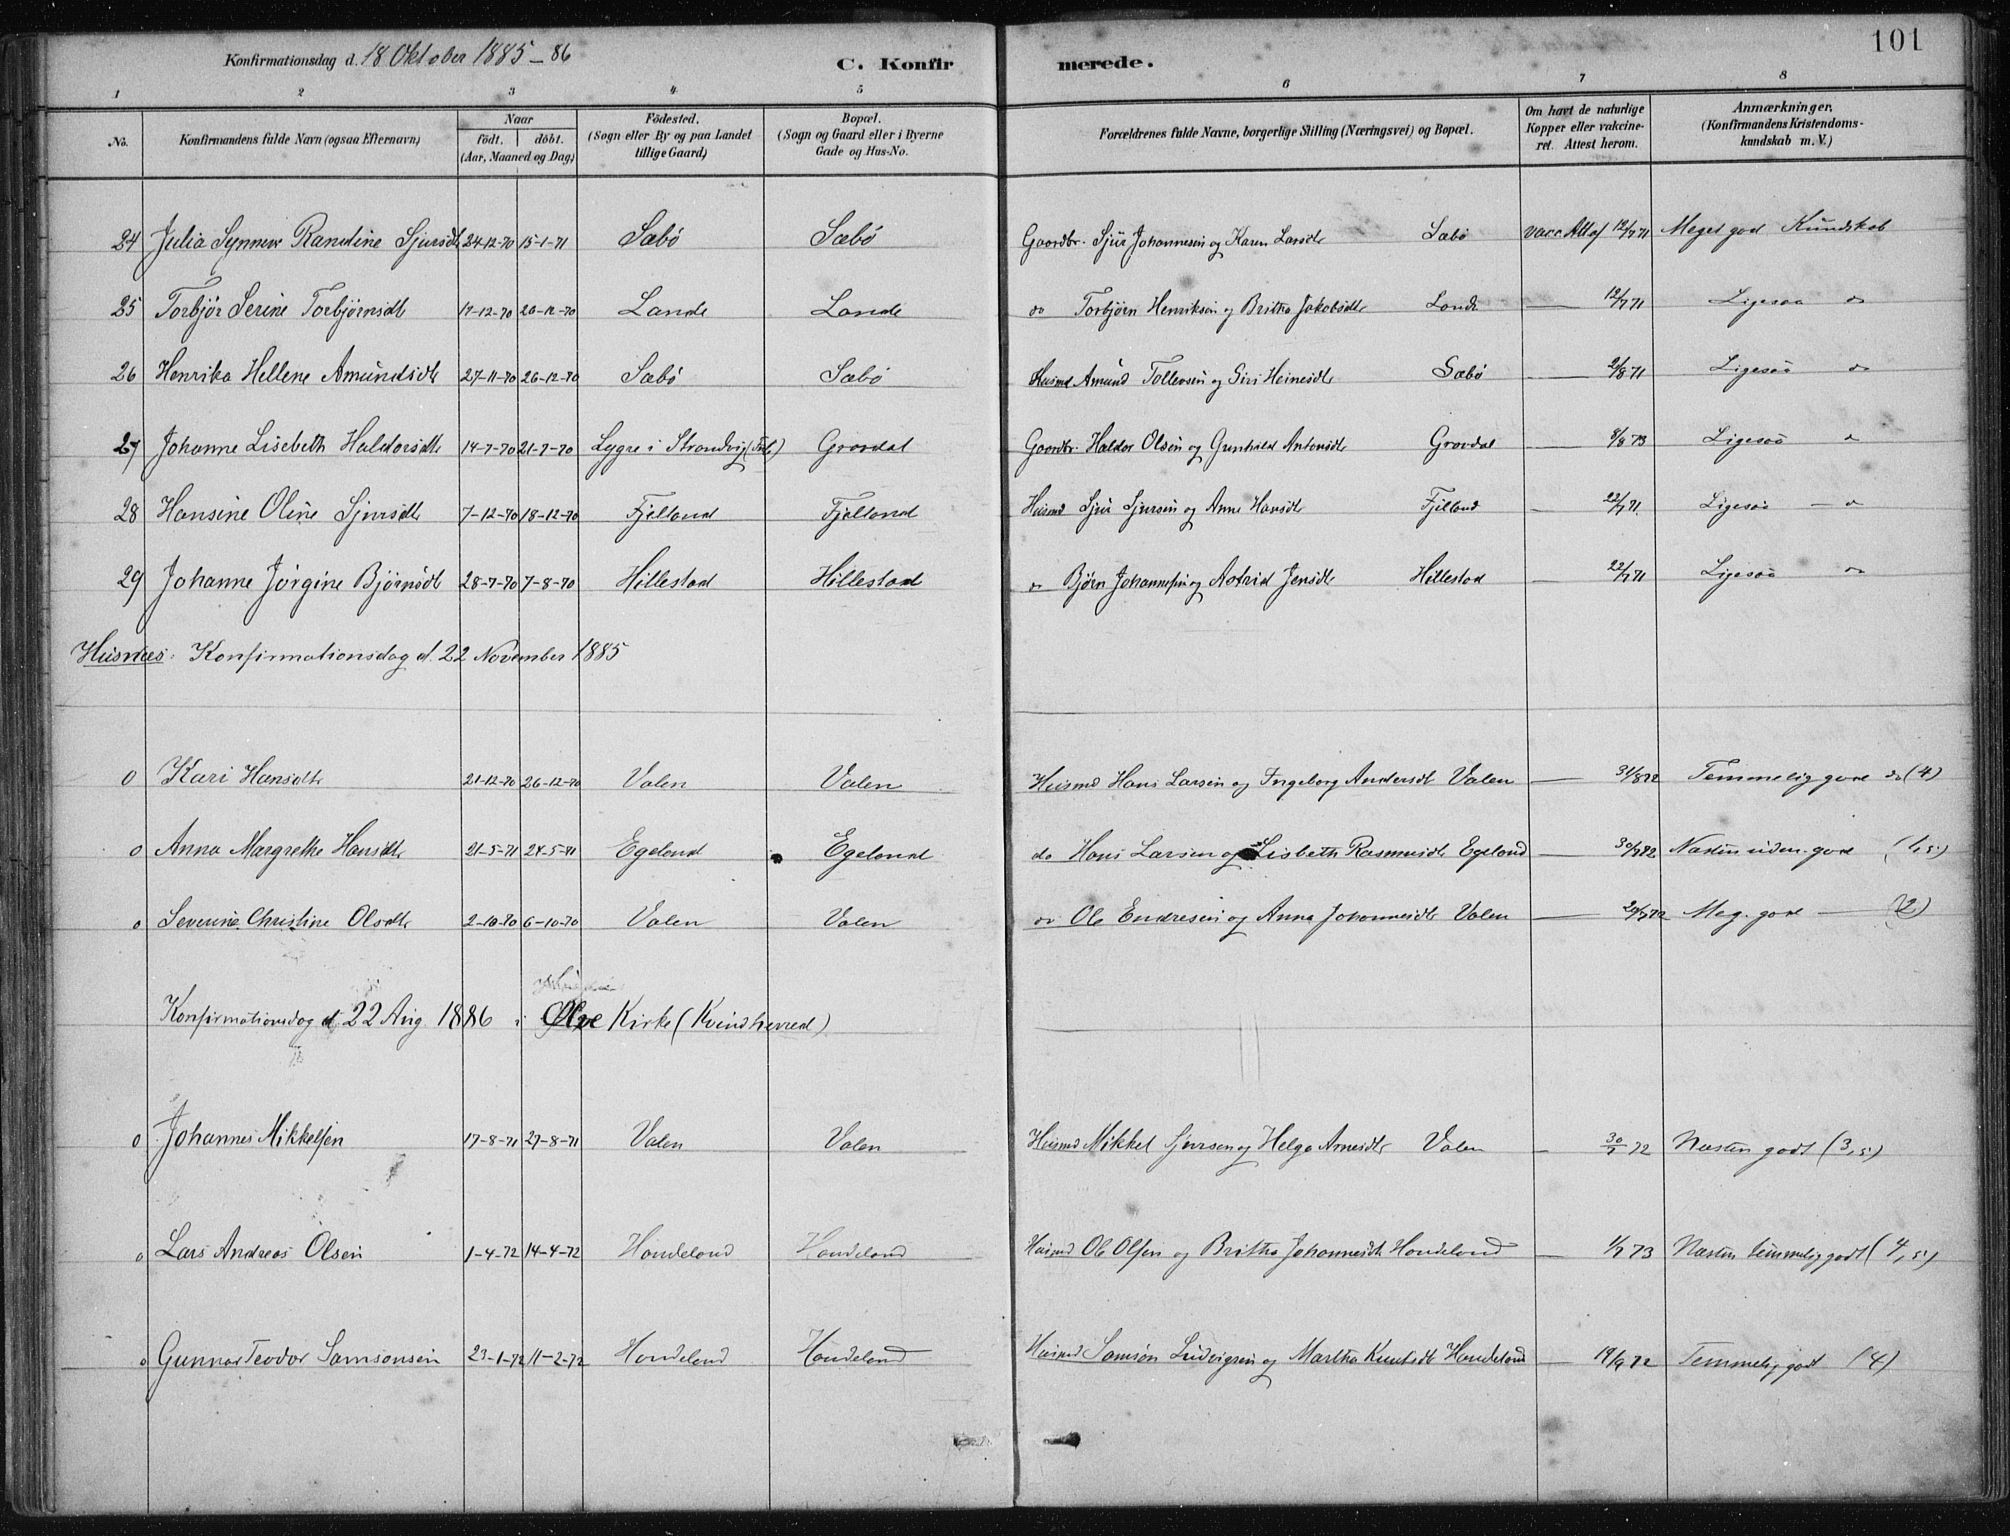 101
Konfirmationsdag d. 18 Oktober 1885-86
C. Konfirmerede.
1 2 3 4 5 6 7 8
No.
Konfirmandens fulde Navn (ogsaa Efternavn)
Naar
födt. döbt.
(Aar, Maaned og Dag)
Födested.
(Sogn eller By og paa Landet
tillige Gaard)
Bopæl.
(Sogn og Gaard eller i Byerne
Gade og Hus-No.
Forældrenes fulde Navne, borgerlige Stilling (Næringsvei) og Bopæl.
Om havt de naturlige
Kopper eller vakcine-
ret. Attest herom.
Anmærkninger.
(Konfirmandens Kristendoms-
kundskab m. V.)
24 Julia Synneve Randine Sjursdt 24-12-70 15-1-71 Sæbö Sæbö Gaardbr. Sjur Johannesen og Karen Larsdt Sæbö vacc. Att af 12/7 71 Meget god Kundskab
25 Torbjør Serine Torbjørnsdt 17-12-70 26-12-70 Lande Lande do Torbjørn Henriksen og Britha Jakobsdt Lande — 12/7 71 Ligesaa do
26 Henrika Hellene Amundsdt 27-11-70 26-12-70 Sæbö Sæbö Husmd Amund Tollevsen og Siri Heinesdt Sæbö — 2/8 71 Ligesaa do
27 Johanne Lisebeth Haldorsdt 14-7-70 21-7-70 Lygre i Strandvig Grovdal Gaardbr. Haldor Olsen og Gunhild Antonsdt Grovdal — 8/8 73 Ligesaa do
28 Hansine Oline Sjursdt 7-12-70 18-12-70 Fjelland Fjelland Husmd Sjur Sjursen og Anne Hansdt Fjelland — 22/7 71. Ligesaa — do
29 Johanne Jørgine Bjørnsdt 28-7-70 7-8-70 Hillestad Hillestad do Bjørn Johannesen og Astrid Jensdt Hillestad — 22/7 71 Ligesaa do
Husnæs: Konfirmationsdag d. 22 November 1885
0 Kari Hansdt 21-12-70 26-12-70 Valen Valen Husmd Hans Larsen og Ingeborg Andersdt Valen — 31/8 72 Temmelig gode do (4)
0 Anna Margrethe Hansdt 21-5-71 24-5-71 Egeland Egeland do Hans Larsen og Lisbeth Rasmusdt Egeland — 30/9 72 Næsten uden. gode
0 Severine Christine Olsdt 2-10-70 6-10-70 Valen Valen do Ole Endresen og Anna Johannesdt Valen — 20/9 72 Meg. gode — (2)
Konfirmationsdag d. 22 Aug. 1886 i Ølve Kirke (Kvindherred)
0 Johannes Mikkelsen 17-8-71 27-8-71 Valen Valen Husmd Mikkel Sjursen og Helga Arnesdt Valen — 30/7 72 Næsten godt (3,5)
0 Lars Andreas Olsen 1-4-72 14-4-72 Handeland Handeland Husmd Ole Olsen og Britha Johannesdt Handeland — 1/7 73 Næsten temmelig godt (4,5)
0 Gunnar Teodor Samsonsen 23-1-72 11-2-72 Handeland Handeland Husmd Samson Ludvigsen og Martha Knutsdt Handeland — 19/9 72 Temmelig godt (4)